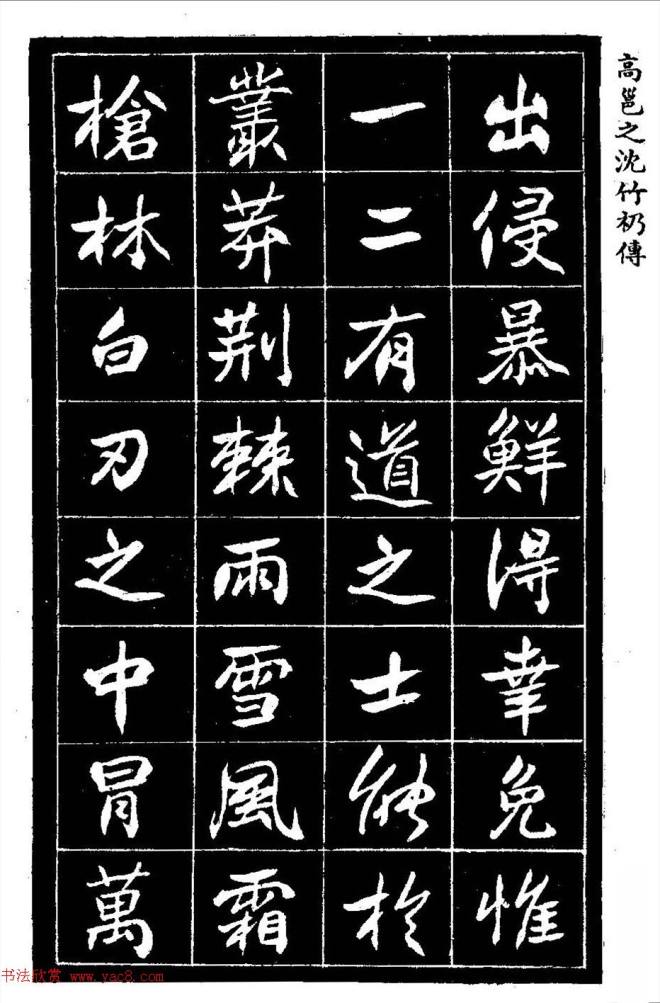 高邕之沈竹礽傳
出侵暴鮮得幸免惟
一二有道之士能於
叢莽荆棘雨雪風霜
槍林白刃之中冒萬
书法欣赏 www.yac8.com